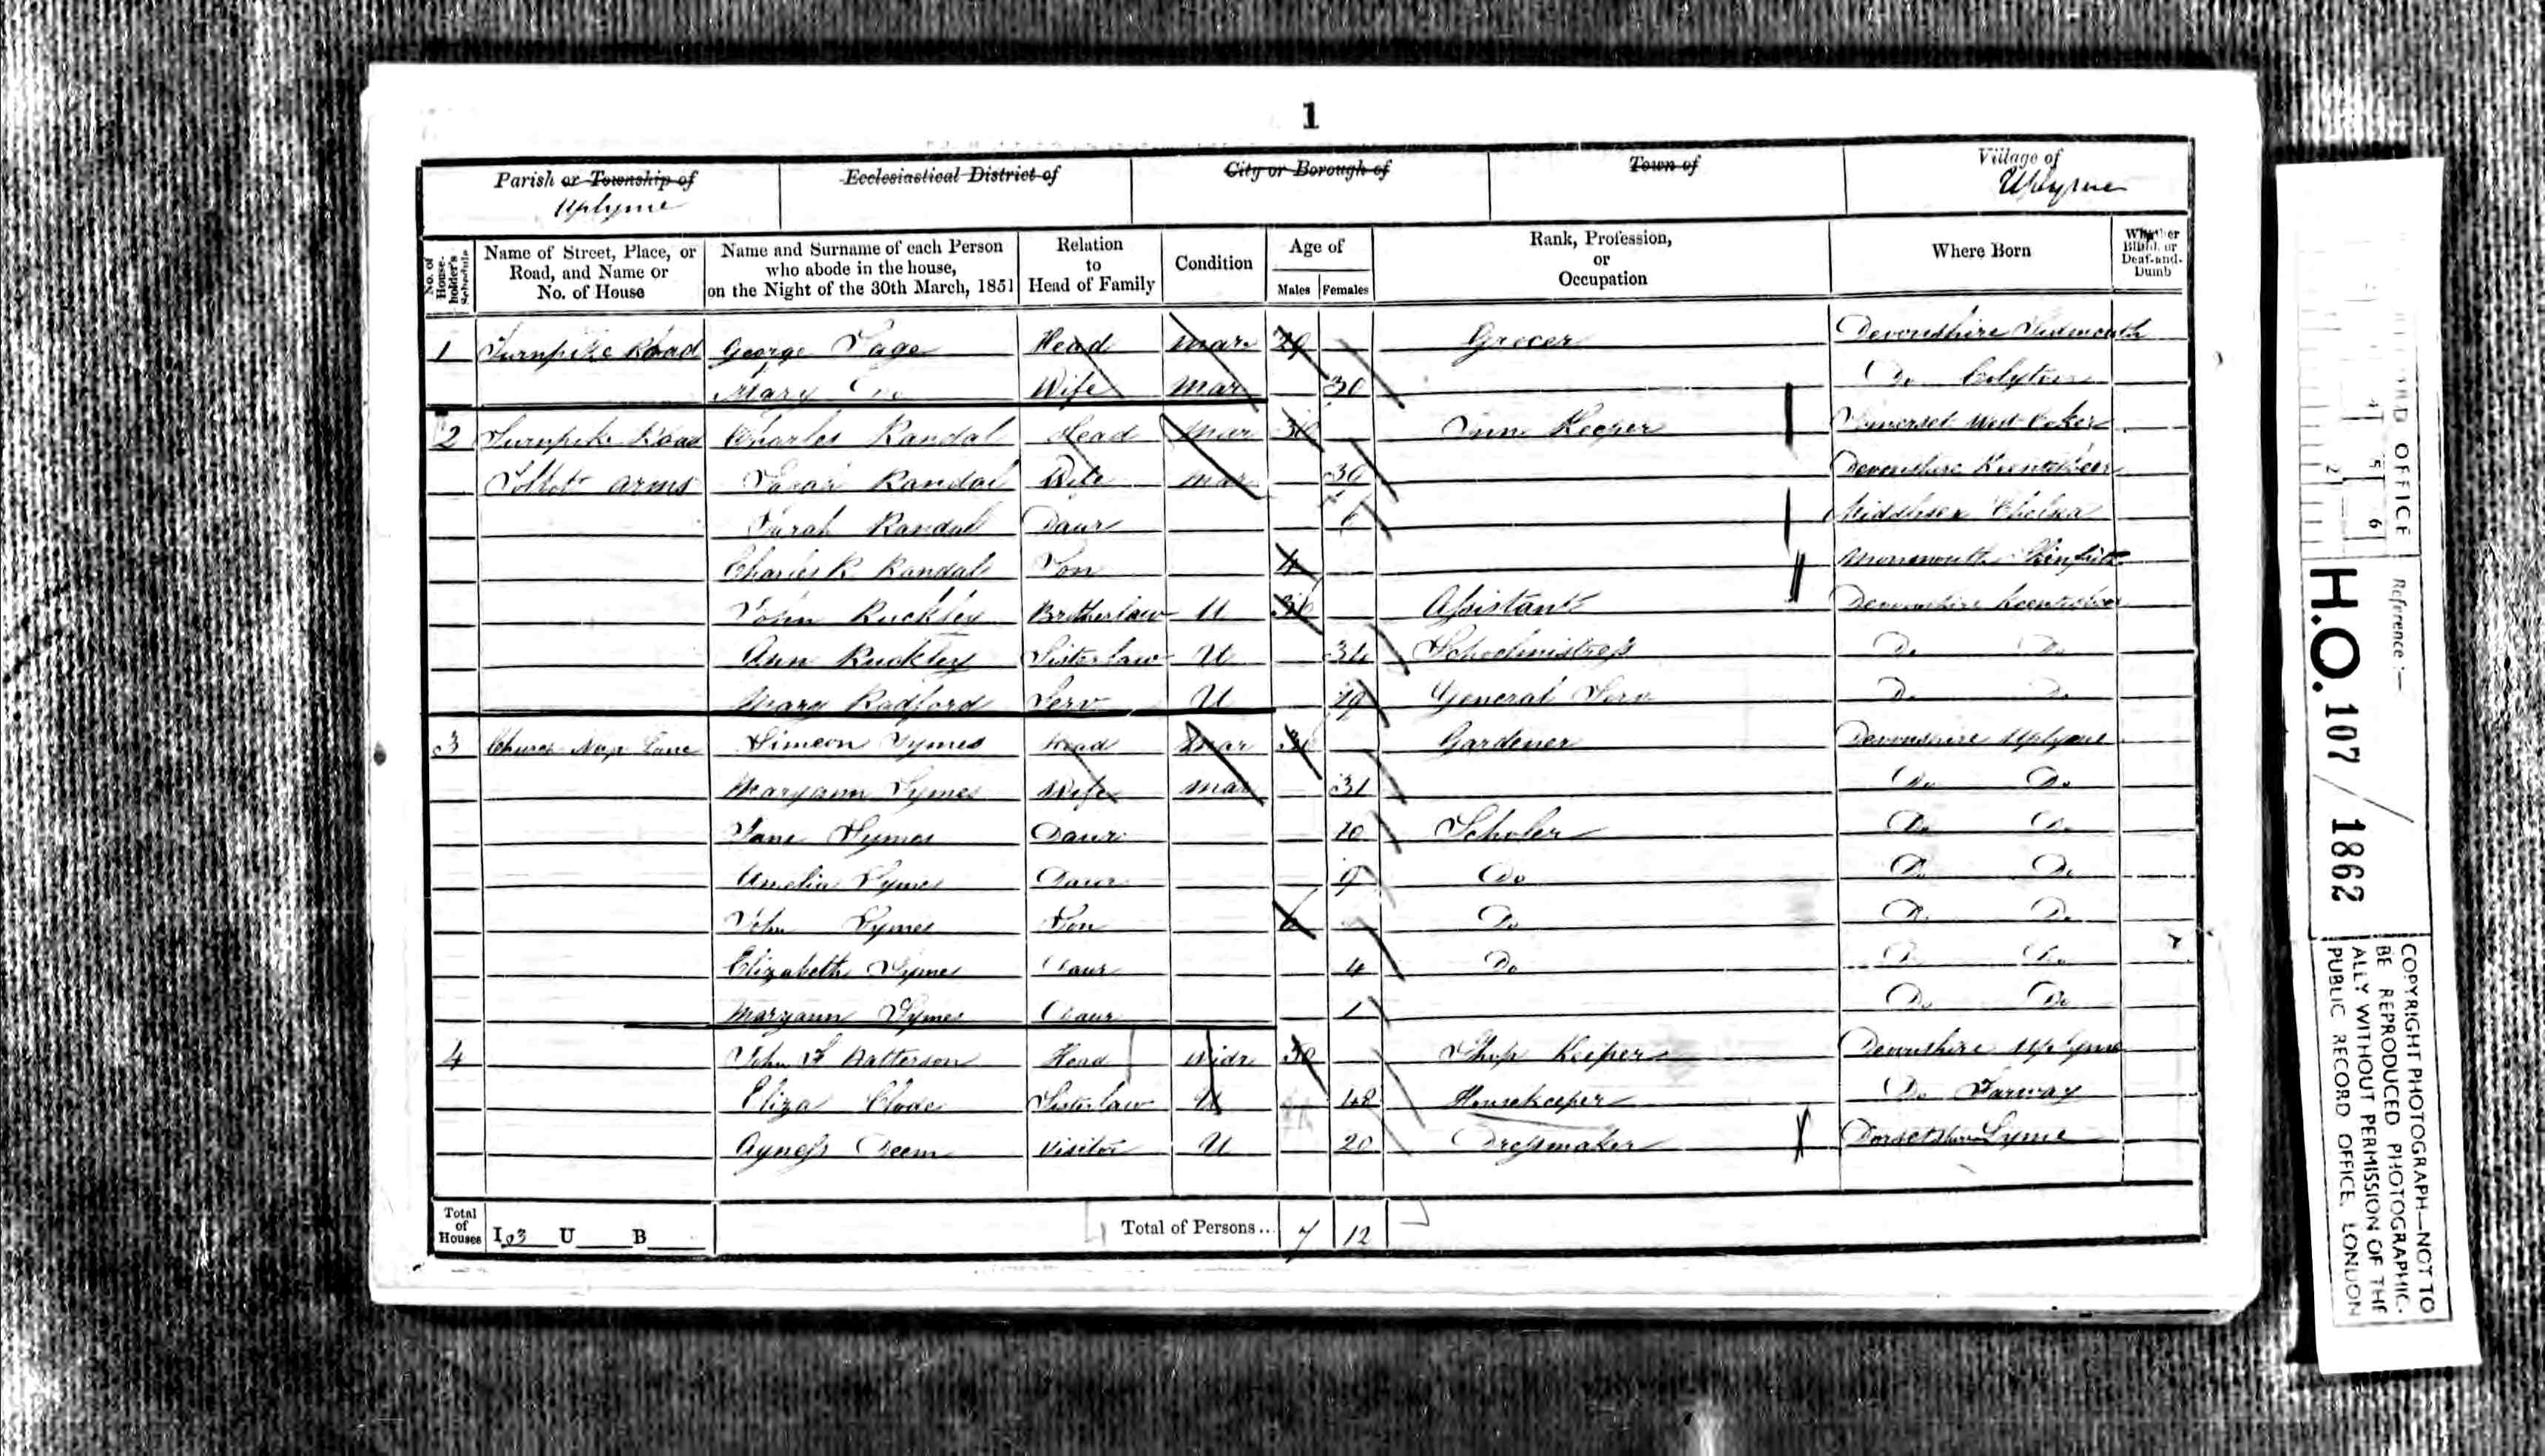 1
Parish or Township of
Uplyme
Ecclesiastical District of
City or Borough of
Town of
Village of
Uplyme
No. of House-holder's Schedule
Name of Street, Place, or Road, and Name or No. of House
Name and Surname of each Person who abode in the house, on the Night of the 30th March, 1851
Relation to Head of Family
Condition
Age of
Males Females
Rank, Profession, or Occupation
Where Born
Whether Blind, or Deaf-and-Dumb
1 Turnpike Road George Page Head Mar 29 Grocer Devonshire Sidmouth
Mary Do Wife Mar 30 Do Colyton
2 Turnpike Road Charles Randal Head Mar Inn Keeper Somerset West Coker
Arms Sarah Randal Wife Mar Devonshire
Sarah Randal Daur 6 Middlesex Chelsea
Charles R Randal Son 4 Monmouth
John Brotherlaw U Assistant Devonshire
Ann Sisterlaw U 34 Schoolmistress Do Do
Mary Radford Serv U 19 General Serv Do Do
3 Church Lane Simeon Symes Head Mar Gardener Devonshire Uplyme
Maryann Symes Wife Mar 31 Do Do
Jane Symes Daur 10 Scholer Do Do
Amelia Symes Daur 9 Do Do Do
John Symes Son 6 Do Do Do
Elizabeth Symes Daur 4 Do Do Do
Maryann Symes Daur 1 Do Do
4 John Head Widr Shop Keeper Devonshire Uplyme
Eliza Clode Sisterlaw U 48 Housekeeper Do Farway
Agness Visitor U 20 Dressmaker Dorsetshire Lyme
Total of Houses I 03 U B Total of Persons... 7 12
RECORD OFFICE
Reference :—
H.O. 107 / 1862
COPYRIGHT PHOTOGRAPH—NOT TO
BE REPRODUCED PHOTOGRAPHIC-
ALLY WITHOUT PERMISSION OF THE
PUBLIC RECORD OFFICE, LONDON